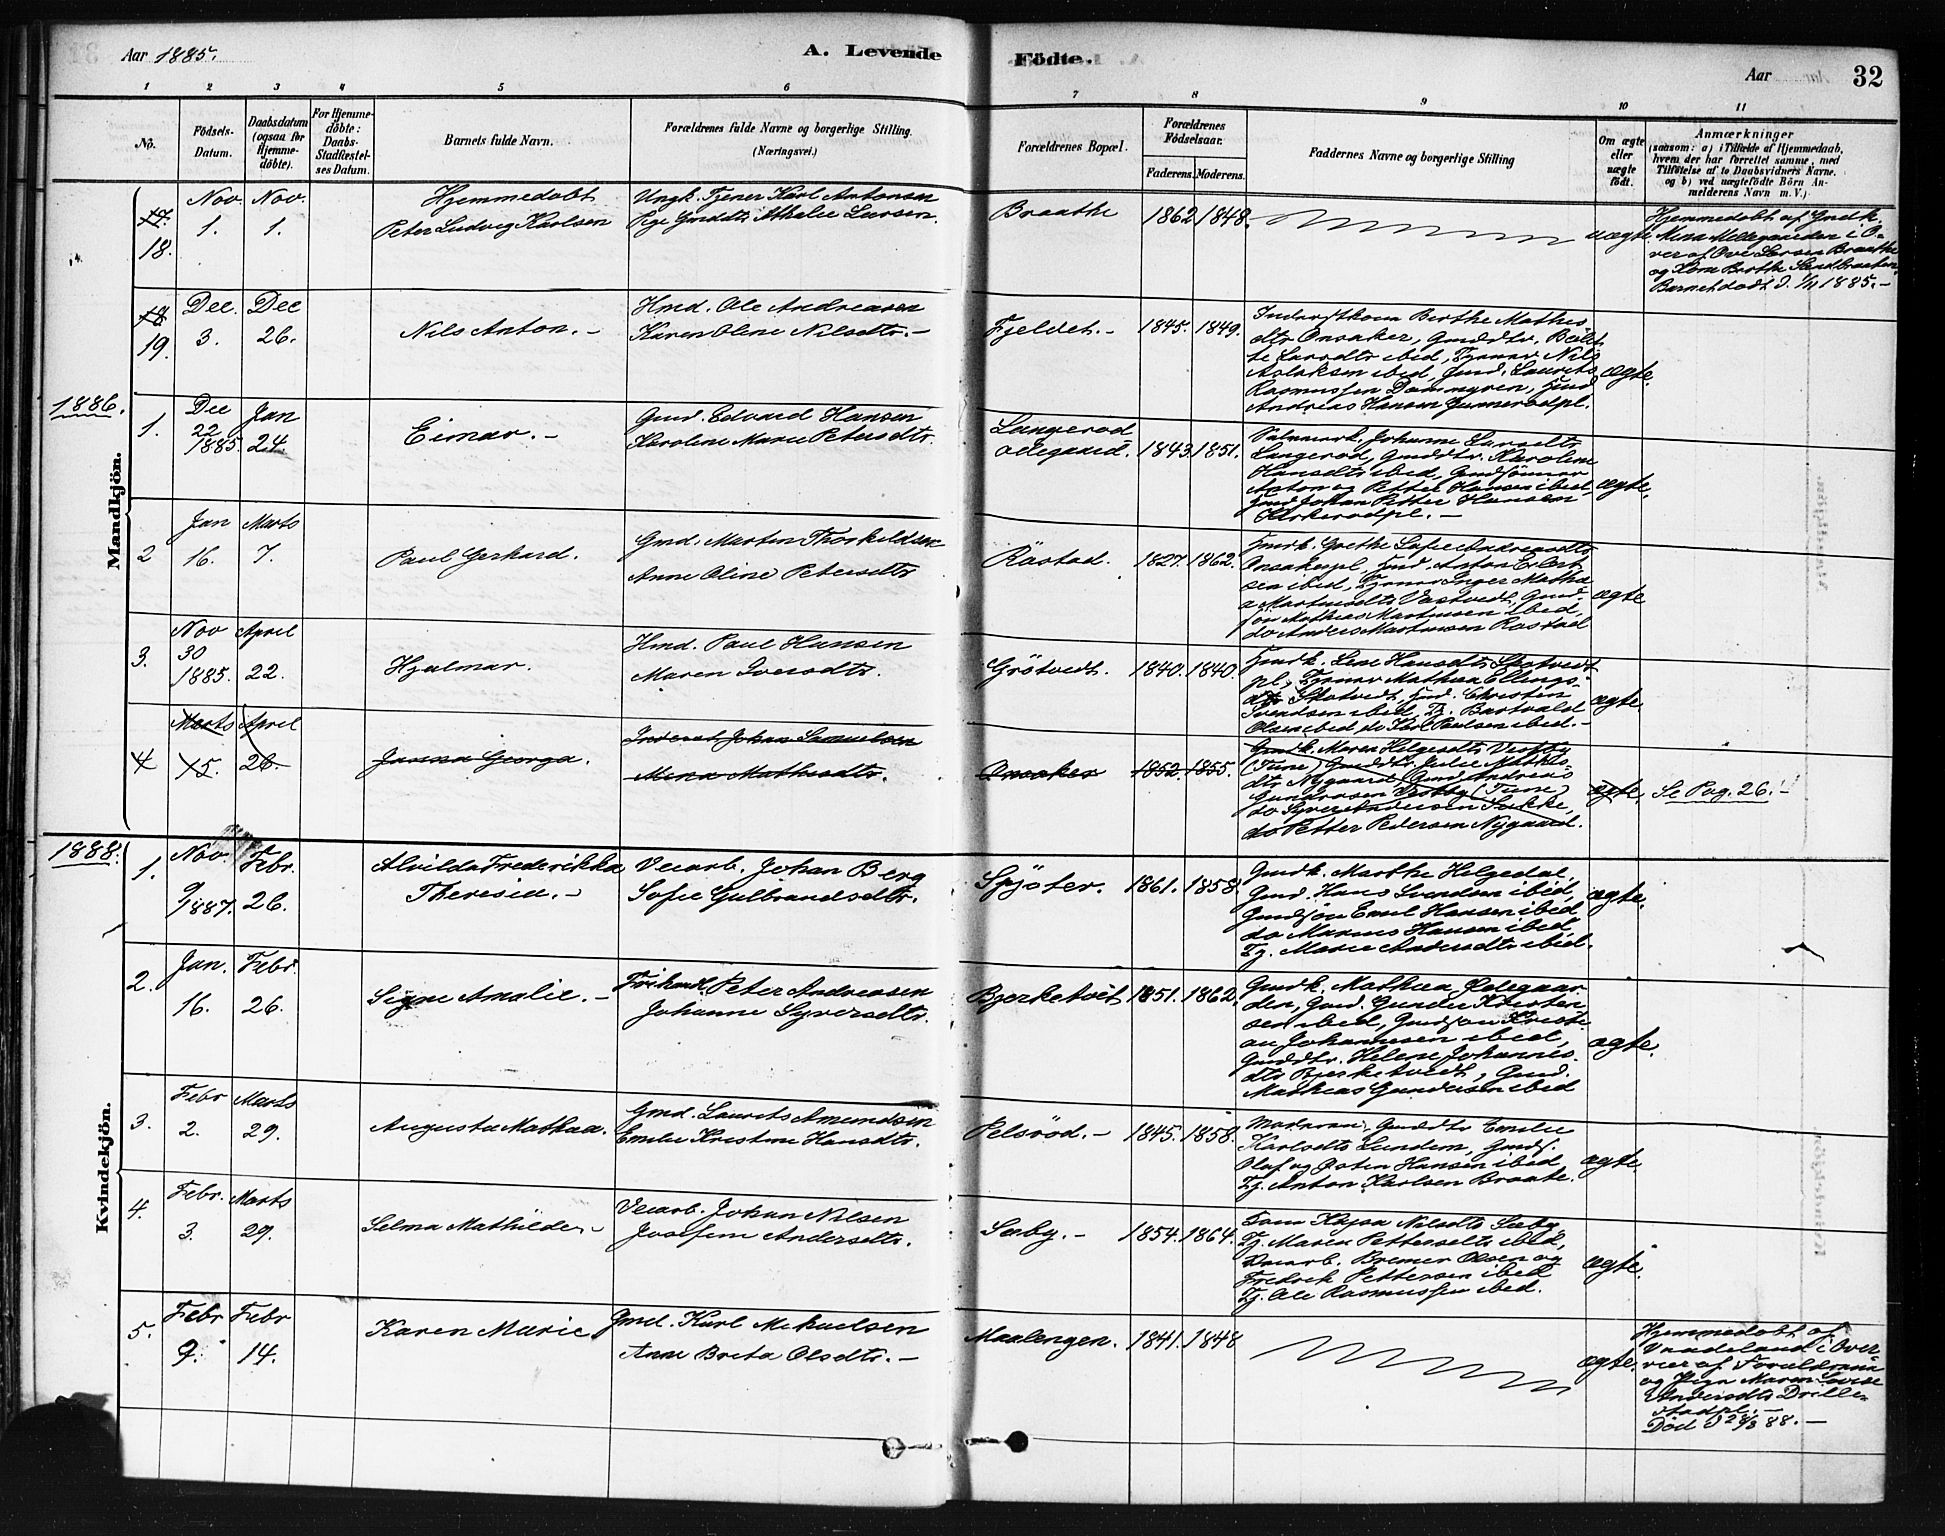 Aar 1885.
A. Levende
Födte.
Aar
32
1 2 3 4 5 6 7 8 9 10 11
No.
Födsels-
Datum.
Daabsdatum
(ogsaa for
Hjemme-
döbte).
For Hjemme-
döbte:
Daabs-
Stadfæstel-
ses Datum.
Barnets fulde Navn.
Forældrenes fulde Navne og borgerlige Stilling.
(Næringsvei.)
Forældrenes Bopæl.
Forældrenes
Födselsaar.
Faderens. Moderens.
Faddernes Navne og borgerlige Stilling
Om ægte
eller
uægte
födt.
Anmærkninger
(saasom: a) i Tilfælde af Hjemmedaab,
hvem der har forrettet samme, med
Tilföielse af to Daabsvidners Navne.
og b) ved uægtefödte Börn An-
melderens Navn m. V.)
Mandkjön.
17.
18.
Nov.
1.
Nov.
1.
Hjemmedøbt
Peter Ludvig Karlsen
Ungk. Tjener Karl Antonsen
Pige Gmddtr Athalie Larsen.
Braathe
1862 1848.
uægte
Hjemmedøbt af Gmdk.
i O-
ver af Ove Larsen Braathe
og Kone Berthe
Barnet dødt d. 1/11 1885.-
18
19.
Dec.
3.
Dec
26.
Nils Anton. -
Hmd. Ole Andreasen
Karen Oline Nilsdtr. -
Fjeldet. -
1845. 1849.
Inderstkone Berthe Mathis
dtr Onsaker, Gmddtr.
Larsdtr ibid, Nils
Aslaksen ibid, Gmd. Laurits
Rasmussen Dammyren, Hmd
Andreas Hansen
ægte.
1886.
1.
Dec
22
1885.
Jan
24
Einar. -
Gmd. Edvard Hansen
Karoline Marie Petersdtr.
Langerød
ødegaard.
1843. 1851.
Johanne Larsdtr
Langerød, Gmddtr. Karoline
Hansdtr ibid, Gmdsönner
Anton og Petter Hansen ibid,
Gmd Johan Petter Hansen
Kirkerødpl. -
ægte.
2
Jan
16.
Marts
7.
Paul Gerhard.
Gmd. Morten Thorkildsen
Anne Oline Petersdtr
Råstad.
1827. 1862.
Hmdk. Grethe Sofie Andreasdtr
Onsakerpl, Hmd. Anton
sen ibid, Inger Mathe
a Martinsdtr Vestvedt, Gmd.
søn Mathias Martinsen ibid,
do Anders Martinsen Råstad
ægte
3.
Nov
30
1885.
April
22.
Hjalmar.
Hmd. Paul Hansen
Maren Iversdtr.
Grötvedt.
1840. 1840.
Hmdk. Lene Hansdtr
pl, Mathea Ellings-
dtr Skotvedt, Hmd. Christen
Svendsen ibid, Tj.
Olsen ibid, do Karl Paulsen ibid. -
ægte.
4
Marts
15.
April
26.
Janna Georga.
Inderst Johan Samuelsen
Mina Mathisdtr.
Onsaker
1852. 1855.
Gmdk. Maren Helgesdtr Vestby
(Tune) Gmddtr. Julie Mathis-
dtr Nygaard, Gmd Andreas
Gundersen Vestby (Tune)
do Syver Andersen Sukke,
do Petter Pedersen Nygaard.
ægte.
Se Pag. 26. -
Kvindekjön.
1888.
1.
Nov.
9/1887.
Febr.
26.
Alvilda Frederikka
Theresia. -
Veiarb. Johan Berg
Sofie Gulbrandsdtr.
Spjøter.
1861. 1858.
Gmdk. Marthe Helgedal,
Gmd. Hans Svendsen ibid,
Gmdsøn Emil Hansen ibid
do Marius Hansen ibid,
Tj. Marie Andersdtr ibid.
ægte.
2.
Jan.
16.
Febr.
26.
Signe Amalie. -
Peter Andreasen
Johanne Syversdtr.
Bjerketvet
1851. 1862.
Gmdk. Mathea
den, Gmd. Gunder Kristen
sen ibid, Gmdsøn Kristi
an Johannesen ibid,
Gmddtr. Helene Johannes
dtr Bjerketvedt, Gmd.
Mathias Gundersen ibid
ægte.
3.
Febr
2.
Marts
29.
Augusta Mathea.
Gmd. Laurits Amundsen
Emilie Kristine Hansdtr.
Pelsröd. -
1845. 1858.
Moderen, Gmddtr Emilie
Karlsdtr Lunden, Gmds.
Olaf og Østen Hansen ibid,
Tj. Anton Karlsen Braate.
ægte
4.
Febr.
3.
Marts
29.
Selma Mathilde. -
Veiarb. Johan Nilsen
Josefine Andersdtr.
Sæby. -
1854. 1864.
Kone Kajsa Nilsdtr Sæby,
Tj. Maren Pettersdtr ibid,
Veiarb. Bremer Olsen og
Fredrik Pettersen ibid
Tj. Ole Rasmussen ibid.
ægte.
5.
Febr
9.
Febr
14.
Karen Marie
Gmd. Karl Mikaelsen
Anne Brita Olsdtr. -
Maalengen.
1841. 1848
ægte.
Hjemmedøbt af
i Over
vær af Forældrene
og Pigen Maren Lovise
Andersdtr Drille-
stadpl. -
Död d 28/3 88. -